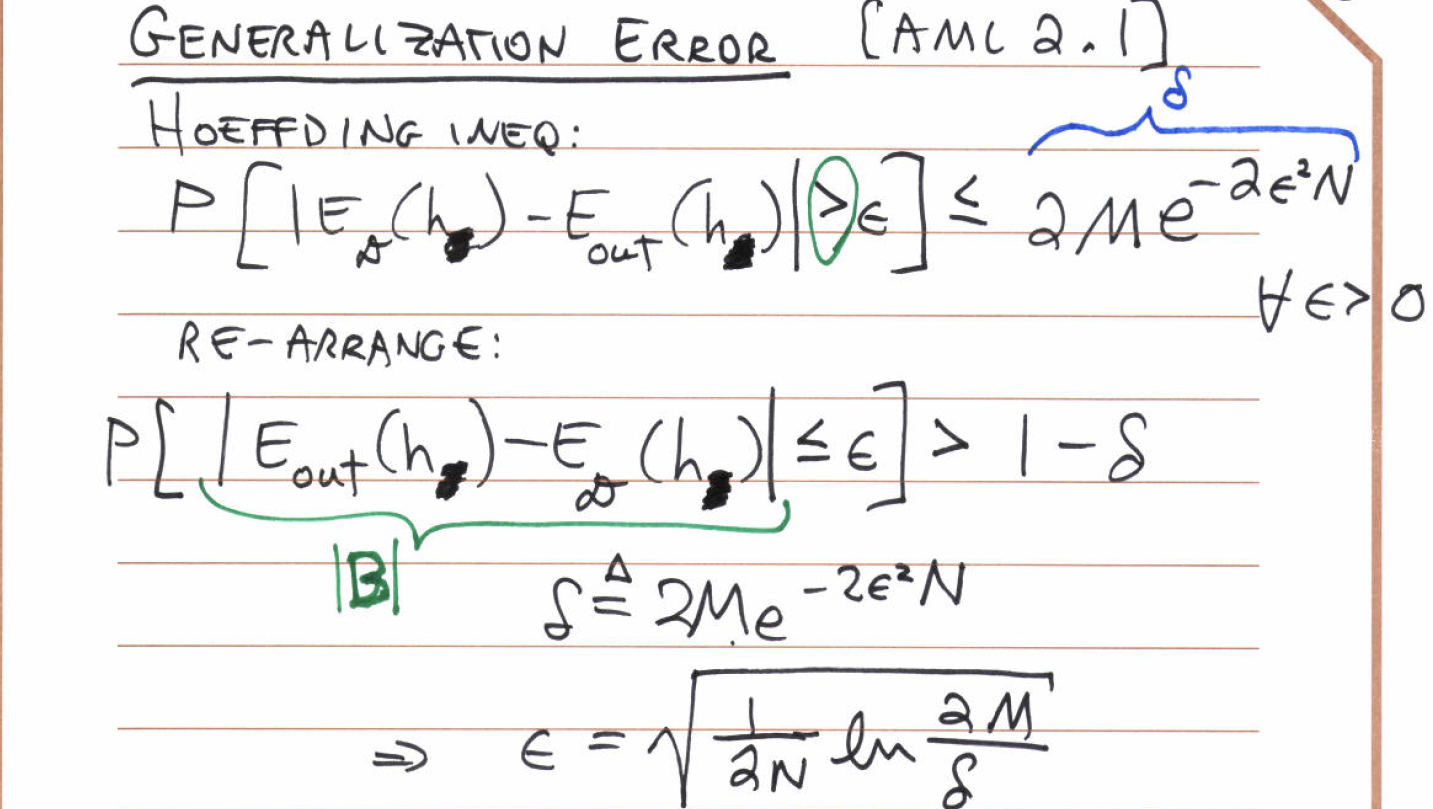 GENERALIZATION ERROR [AML 2.1]
δ
HOEFFDING INEQ:
P[|E_D(h) - E_out(h)| > ϵ] ≤ 2Me^{-2ϵ²N}
∀ ϵ > 0
RE-ARRANGE:
P[|E_out(h) - E_D(h)| ≤ ϵ] > 1 - δ
|B|
δ ≜ 2Me^{-2ϵ²N}
⇒ ϵ = √(1/2N ln 2M/δ)